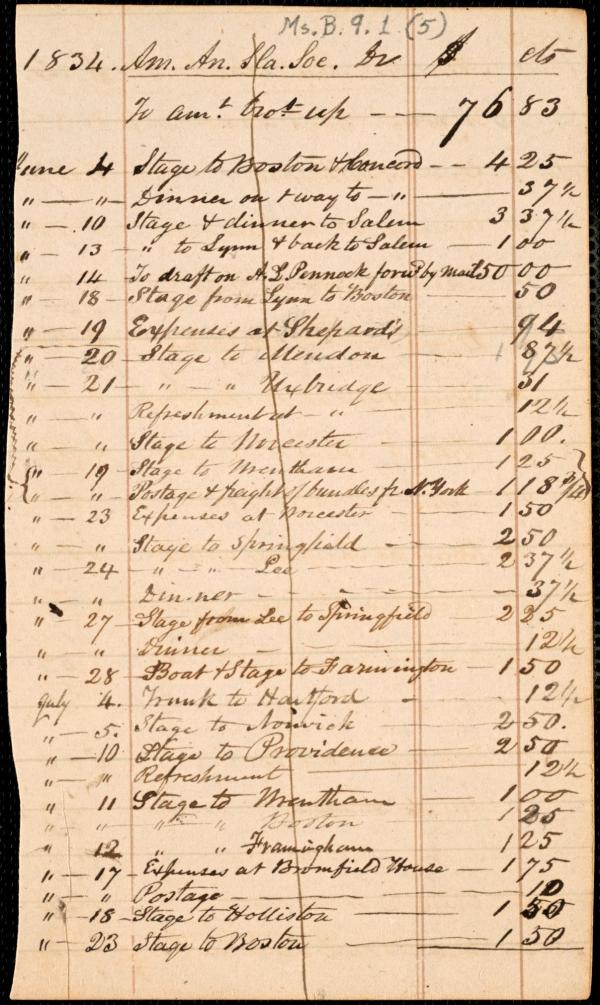 Ms. B. 9. 1 (5)
1834. Am. An. Sla. Soc. Dr $ cts
To amt brot up -- -- 76 83
June 4 Stage to Boston & Concord -- 4 25
" -- " -- Dinner on & way to -- " -- 37½
" -- 10 Stage & dinner to Salem 3 37½
" -- 13 " to Lynn & back to Salem -- 1 00
" 14 To draft on A. L. Pennock forwd by mail 50 00
" -- 18 -- Stage from Lynn to Boston 50
" -- 19 Expenses at Shepard's 94
" -- 20 -- Stage to Mendon -- 87½
" -- 21 -- " -- " Uxbridge -- 31
" -- " Refreshment at -- " -- 12½
" -- " Stage to Worcester -- 1 00.
" -- 19 -- Stage to Wrentham -- 1 25
" -- " Postage & freight of bundles fr N. York -- 1 18¾
" -- 23 Expenses at Worcester -- 1 50
" " Stage to Springfield -- 2 50
" -- 24 -- " -- " Lee -- 2 37½
" -- " Dinner -- 37½
" -- 27 -- Stage from Lee to Springfield -- 2 25
" -- " Dinner -- 12½
" -- 28 -- Boat & Stage to Farmington -- 1 50
July 4. Trunk to Hartford -- 12½
" -- 5. Stage to Norwich -- 2 50.
" -- 10 Stage to Providence -- 2 50
" -- " Refreshment -- 12½
" -- 11 Stage to Wrentham -- 1 00
" -- " " " Boston 1 25
" -- 12 -- " " Framingham 1 25
" -- 17 -- Expenses at Bromfield House -- 1 75
" -- " Postage -- 10
" -- 18 -- Stage to Holliston -- 1 50
" -- 23 Stage to Boston -- 1 50